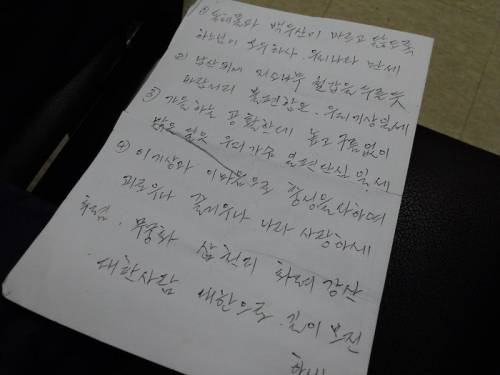 ① 동해물과 백두산이 마르고 닳도록
하느님이 보우하사 우리나라 만세
② 남산위에 저소나무 철갑을 두른듯
바람서리 불변함은 우리기상일세
③ 가을하늘 공활한데 높고 구름없이
밝은 달은 우리가슴 일편단심일세
④ 이기상과 이마음으로 충성을 다하여
괴로우나 즐거우나 나라 사랑하세
후렴. 무궁화 삼천리 화려강산
대한사람 대한으로 길이 보전
하세